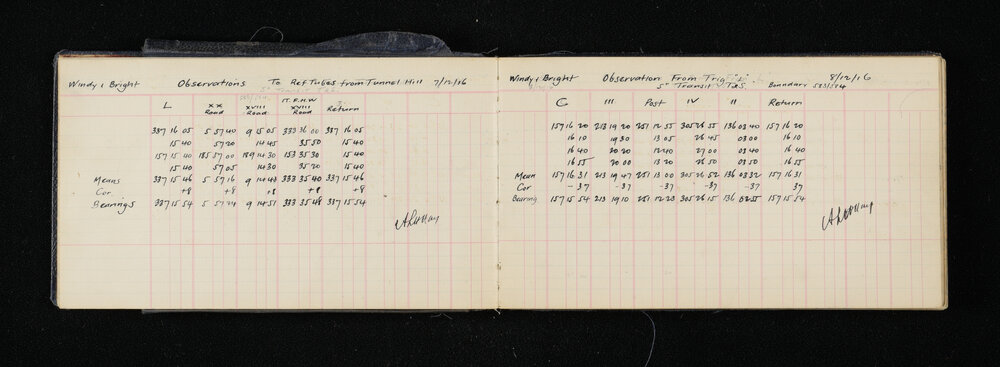 Windy & Bright Observations To Ref Tubes from Tunnel Hill 7/12/16
5" Transit T&S
L XX Road XVIII Road IT.F.H.W XVIII Road Return
337 16 05 5 57 40 9 15 05 333 36 00 337 16 05
15 40 57 20 14 45 35 50 15 40
157 15 40 185 57 00 189 14 30 153 35 30 15 40
15 40 57 05 14 30 35 20 15 40
Means 337 15 46 5 57 16 9 14 43 333 35 40 337 15 46
Cor +8 +8 +8 +8 +8
Bearings 337 15 54 5 57 24 9 14 51 333 35 48 337 15 54
Windy & Bright Observation From Trig 8/12/16
5" Transit T&S. Boundary 593/594
C III Post IV II Return
157 16 20 213 19 20 251 12 55 305 26 55 136 03 40 157 16 20
16 10 19 30 13 05 26 45 03 00 16 10
16 40 20 20 12 40 27 00 03 40 16 40
16 55 20 00 13 20 26 50 03 50 16 55
Mean 157 16 31 213 19 47 251 13 00 305 26 52 136 03 32 157 16 31
Cor -37 -37 -37 -37 -37 37
Bearing 157 15 54 213 19 10 251 12 23 305 26 15 136 02 55 157 15 54